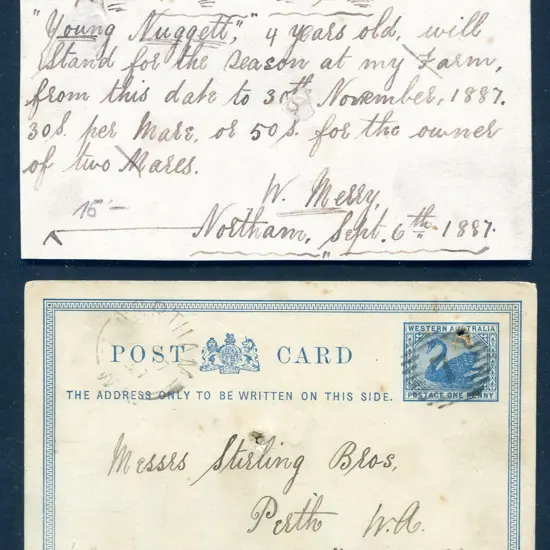 "Young Nuggett," 4 years old, will
stand for the season at my Farm,
from this date to 30th November, 1887.
30s. per Mare, or 50s. for the owner
of two Mares.
W. Merry,
15-
Northam, Sept. 6th 1887.
POST CARD
WESTERN AUSTRALIA
POSTAGE ONE PENNY
THE ADDRESS ONLY TO BE WRITTEN ON THIS SIDE.
Messrs Stirling Bros,
Perth W.A.